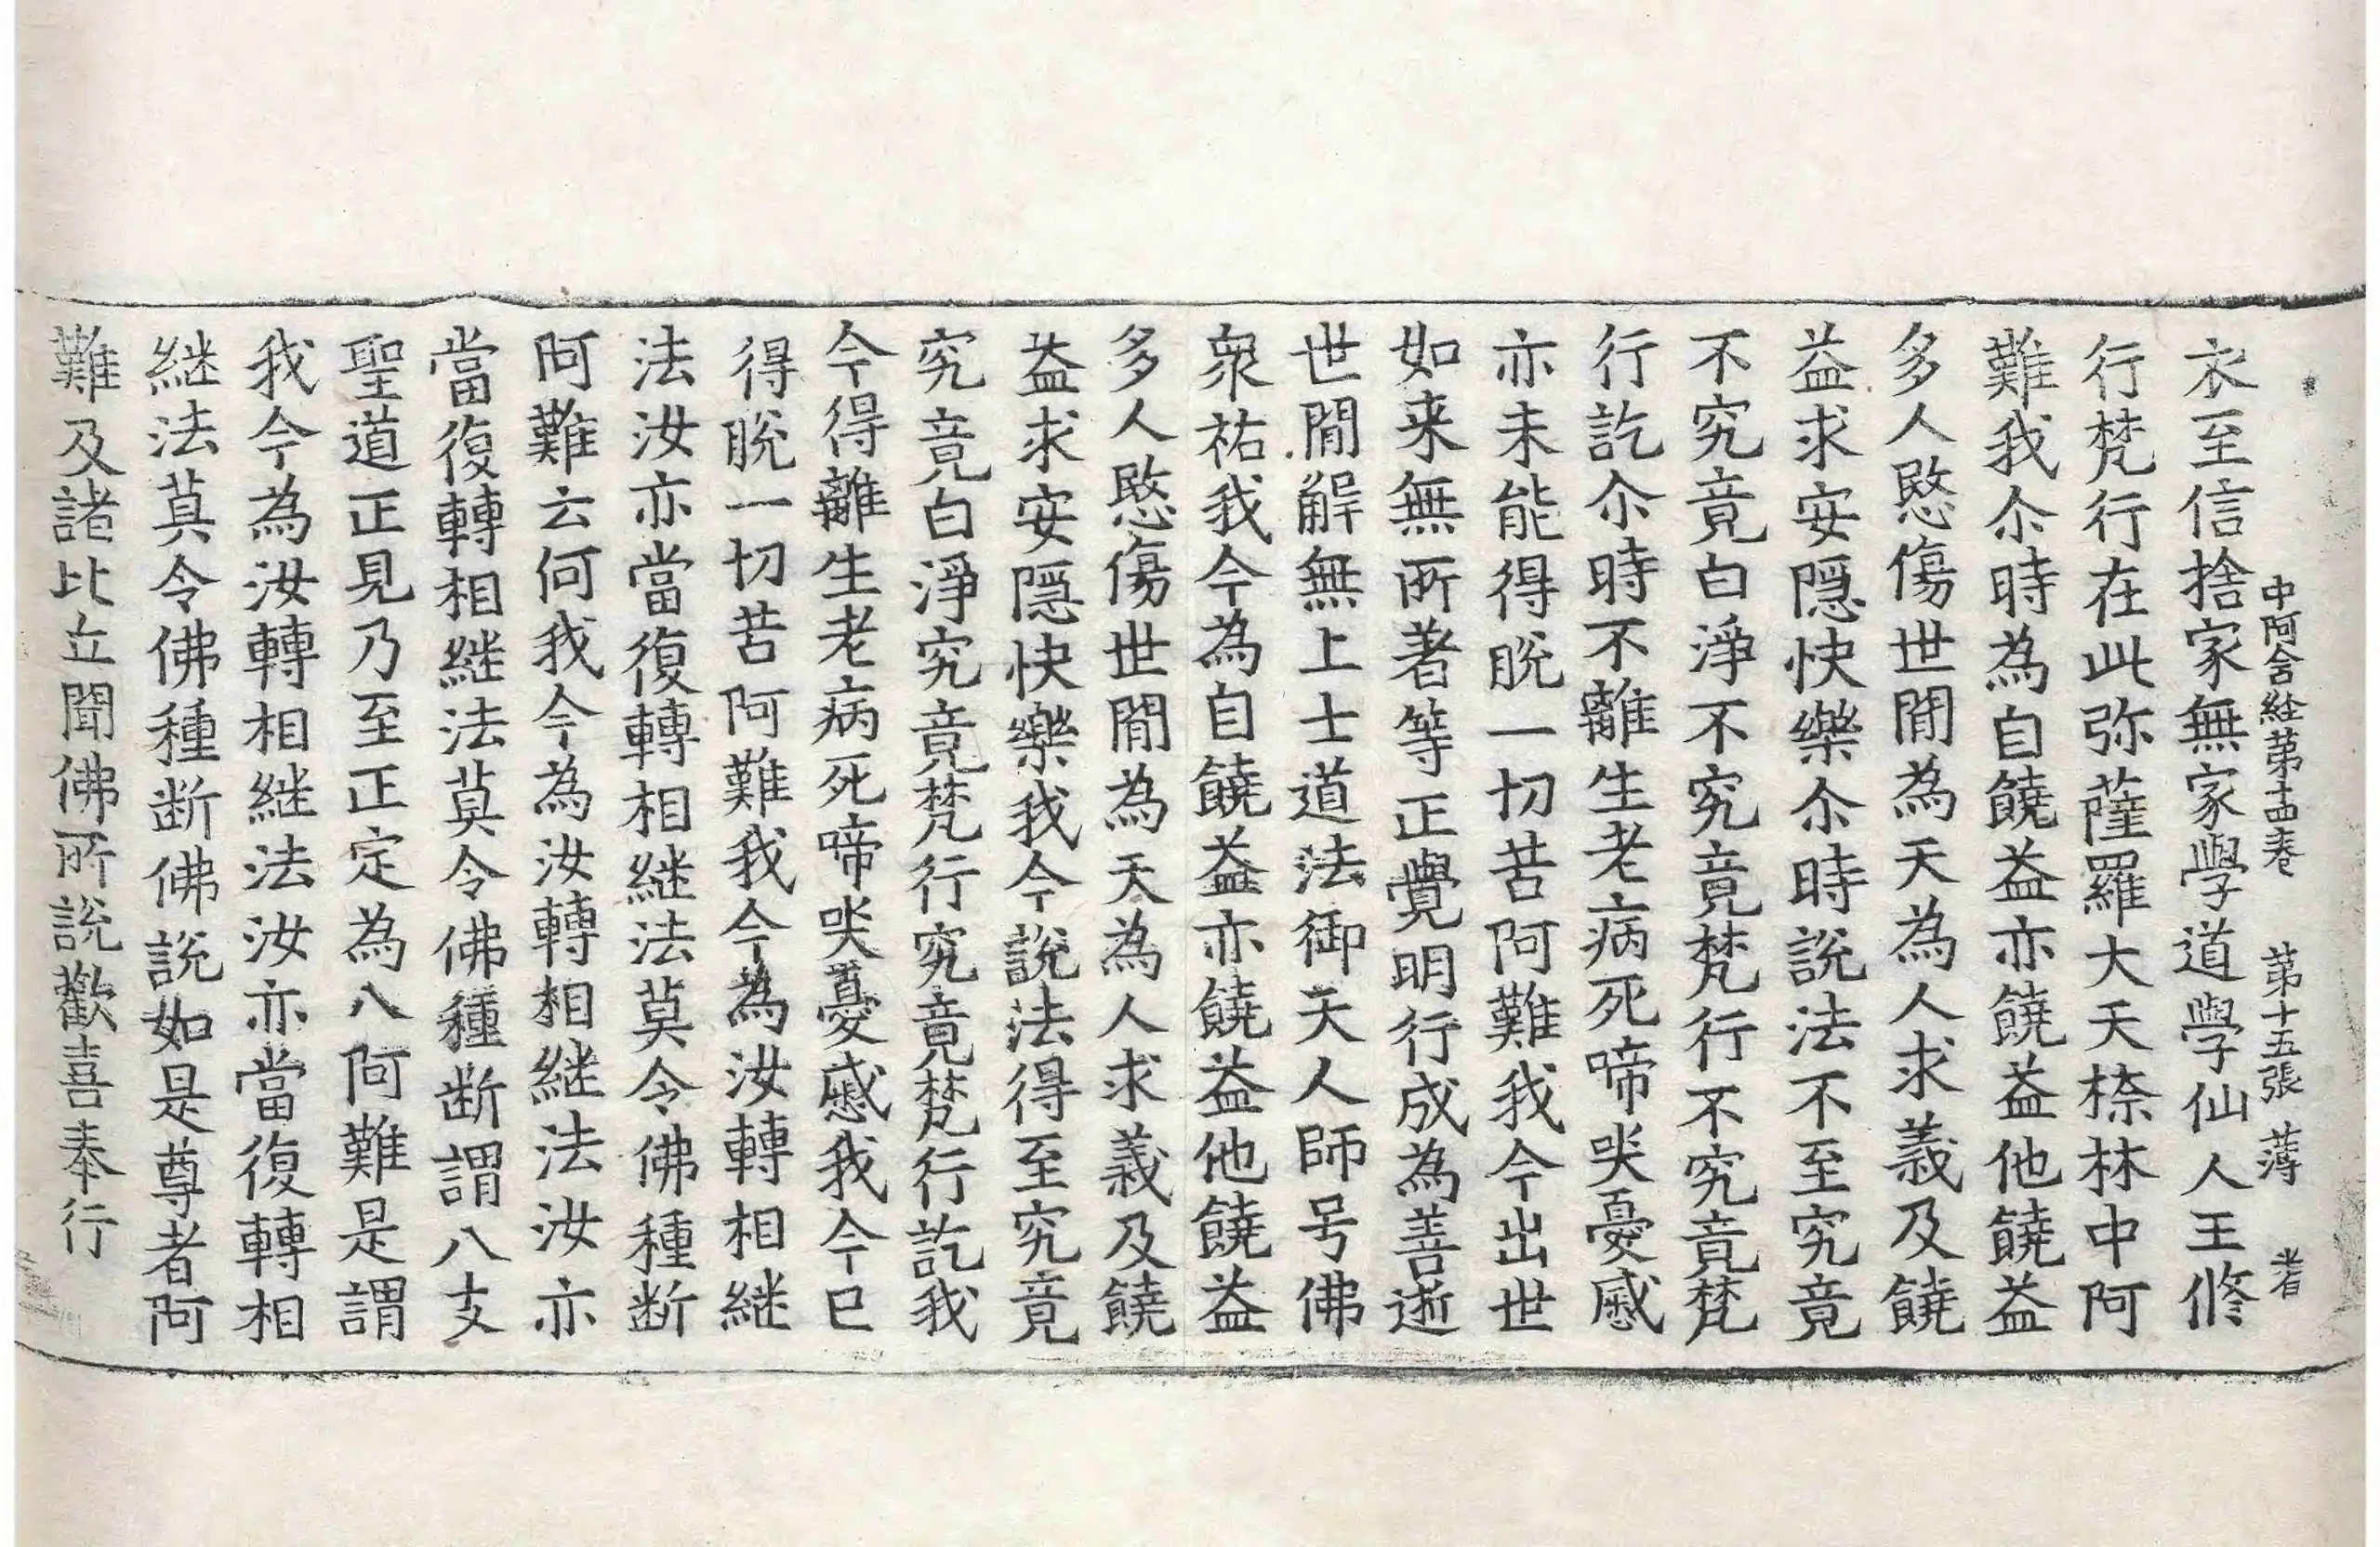 中阿含経苐十四卷 苐十五張 薄 老
衣至信捨家無家學道學仙人王修
行梵行在此弥薩羅大天㮈林中阿
難我尒時為自饒益亦饒益他饒益
多人愍傷世閒為天為人求義及饒
益求安隠快樂尒時說法不至究竟
不究竟白淨不究竟梵行不究竟梵
行訖尒時不離生老病死啼哭憂慼
亦未能得脫一切苦阿難我今出世
如来無所著等正覺明行成為善逝
世閒解無上士道法御天人師号佛
衆祐我今為自饒益亦饒益他饒益
多人愍傷世閒為天為人求義及饒
益求安隠快樂我今說法得至究竟
究竟白淨究竟梵行究竟梵行訖我
今得離生老病死啼哭憂慼我今已
得脫一切苦阿難我今為汝轉相継
法汝亦當復轉相継法莫令佛種断
阿難云何我今為汝轉相継法汝亦
當復轉相継法莫令佛種断謂八支
聖道正見乃至正定為八阿難是謂
我今為汝轉相継法汝亦當復轉相
継法莫令佛種断佛說如是尊者阿
難及諸比丘聞佛所說歡喜奉行